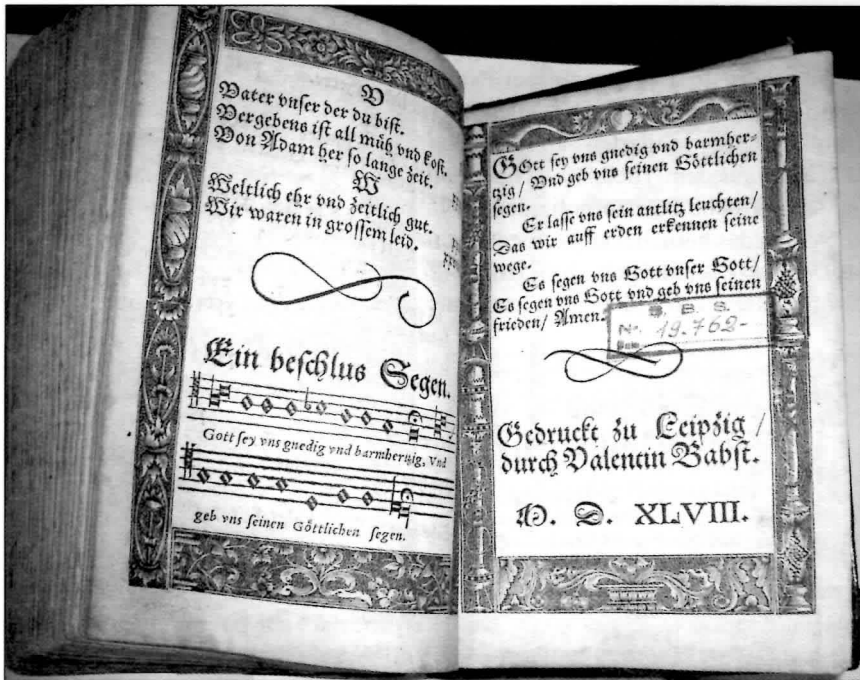 V
Vater vnser der du bist.
Vergebens ist all müh vnd kost.
Von Adam her so lange zeit.
W
Weltlich ehr vnd zeitlich gut.
Wir waren in grossem leid.
Ein beschlus Segen.
Gott sey vns gnedig vnd barmhertzig, Vnd
geb vns seinen Göttlichen segen.
GOtt sey vns gnedig vnd barmher-
tzig / Vnd geb vns seinen Göttlichen
segen.
Er lasse vns sein antlitz leuchten /
Das wir auff erden erkennen seine
wege.
Es segen vns Gott vnser Gott /
Es segen vns Gott vnd geb vns seinen
frieden / Amen.
S. B. S.
No. 19.762-
Gedruckt zu Leipzig /
durch Valentin Babst.
M. D. XLVIII.